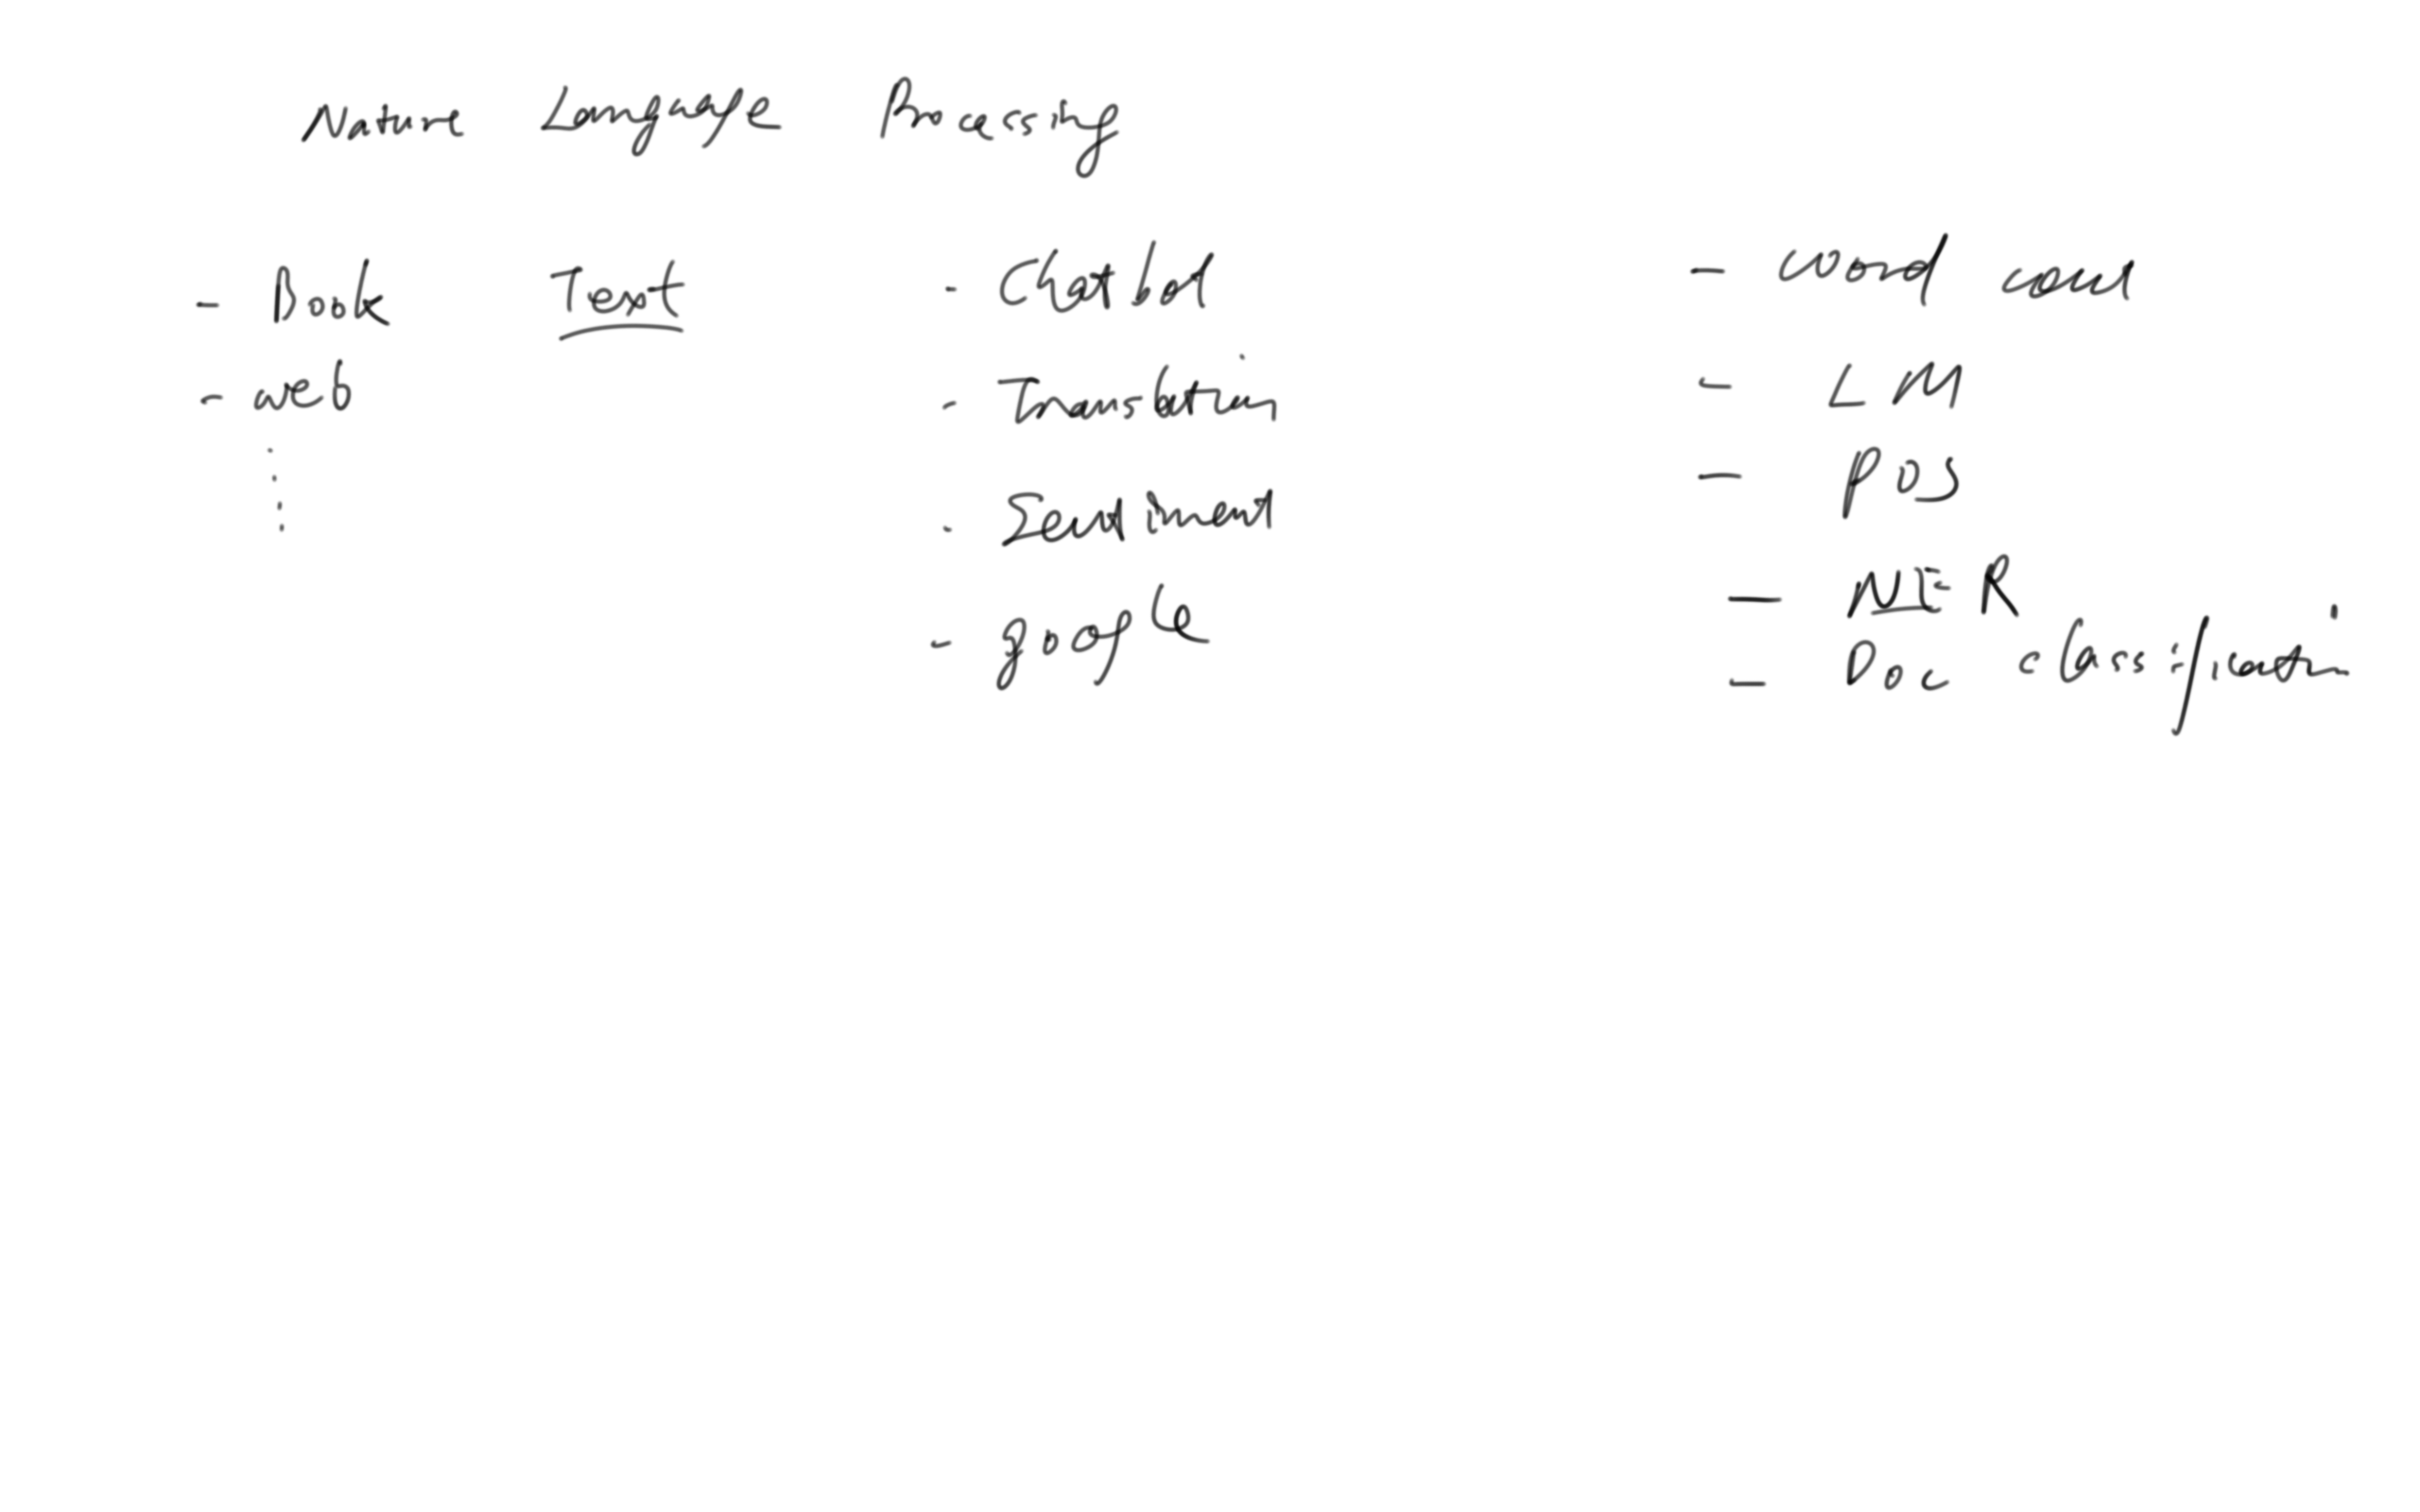 Nature Language Processing
- Book
- web
Text
- Chat bot
- Translation
- Sentiment
- google
- word count
- LM
- POS
- NER
- Doc classification